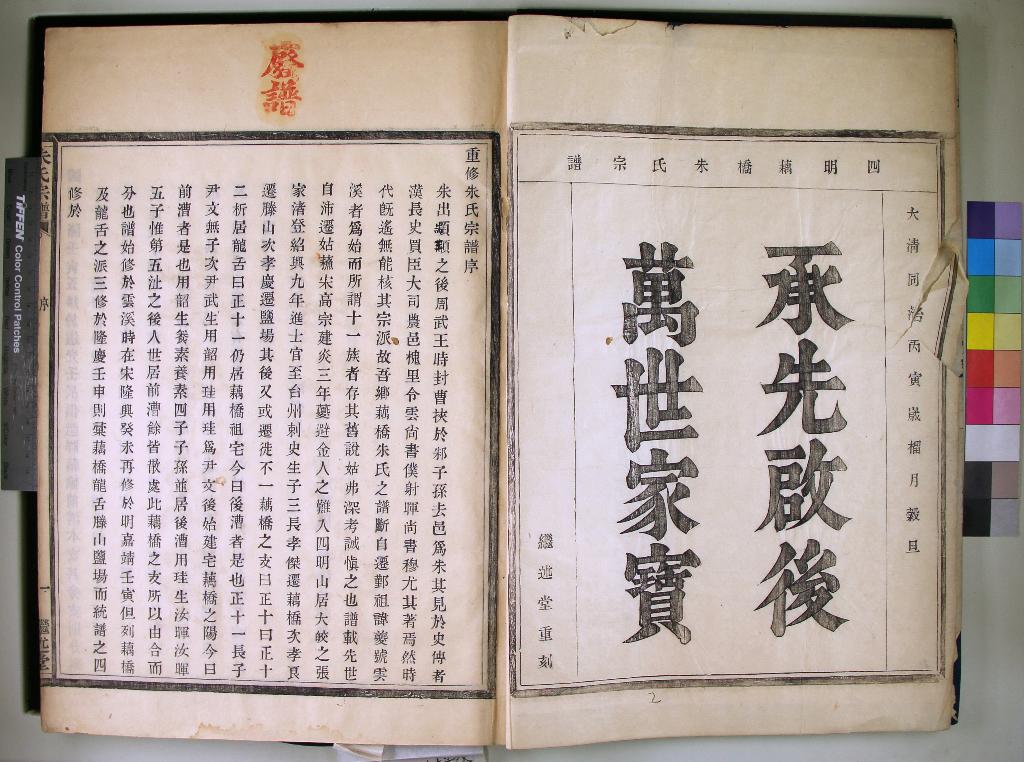 四明藕橋朱氏宗譜
大清同治丙寅歲榴月穀旦
承先啟後
萬世家寶
繼述堂重刻
2
慶譜
重修朱氏宗譜序
朱出顓頊之後周武王時封曹挾於邾子孫去邑爲朱其見於史傳者
漢長史買臣大司農邑槐里令雲尚書僕射暉尚書穆尤其著焉然時
代旣遙無能核其宗派故吾鄉藕橋朱氏之譜斷自遷鄞祖諱夔號雲
溪者爲始而所謂十一族者存其舊說姑弗深考誠愼之也譜載先世
自沛遷姑蘇宋高宗建炎三年夔避金人之難入四明山居大皎之張
家渚登紹興九年進士官至台州刺史生子三長孝傑遷藕橋次孝良
遷滕山次孝慶遷鹽場其後又或遷徙不一藕橋之支曰正十曰正十
二析居龍舌曰正十一仍居藕橋祖宅今曰後漕者是也正十一長子
尹文無子次尹武生用韶用珪用珪爲尹文後始建宅藕橋之陽今曰
前漕者是也用韶生養素養素四子子孫並居後漕用珪生汝暉汝暉
五子惟第五沚之後入世居前漕餘皆散處此藕橋之支所以由合而
分也譜始修於雲溪時在宋隆興癸未再修於明嘉靖壬寅但列藕橋
及龍舌之派三修於隆慶壬申則彙藕橋龍舌滕山鹽場而統譜之四
修於
朱氏宗譜
序
一
繼述堂
TIFFEN Color Control Patches